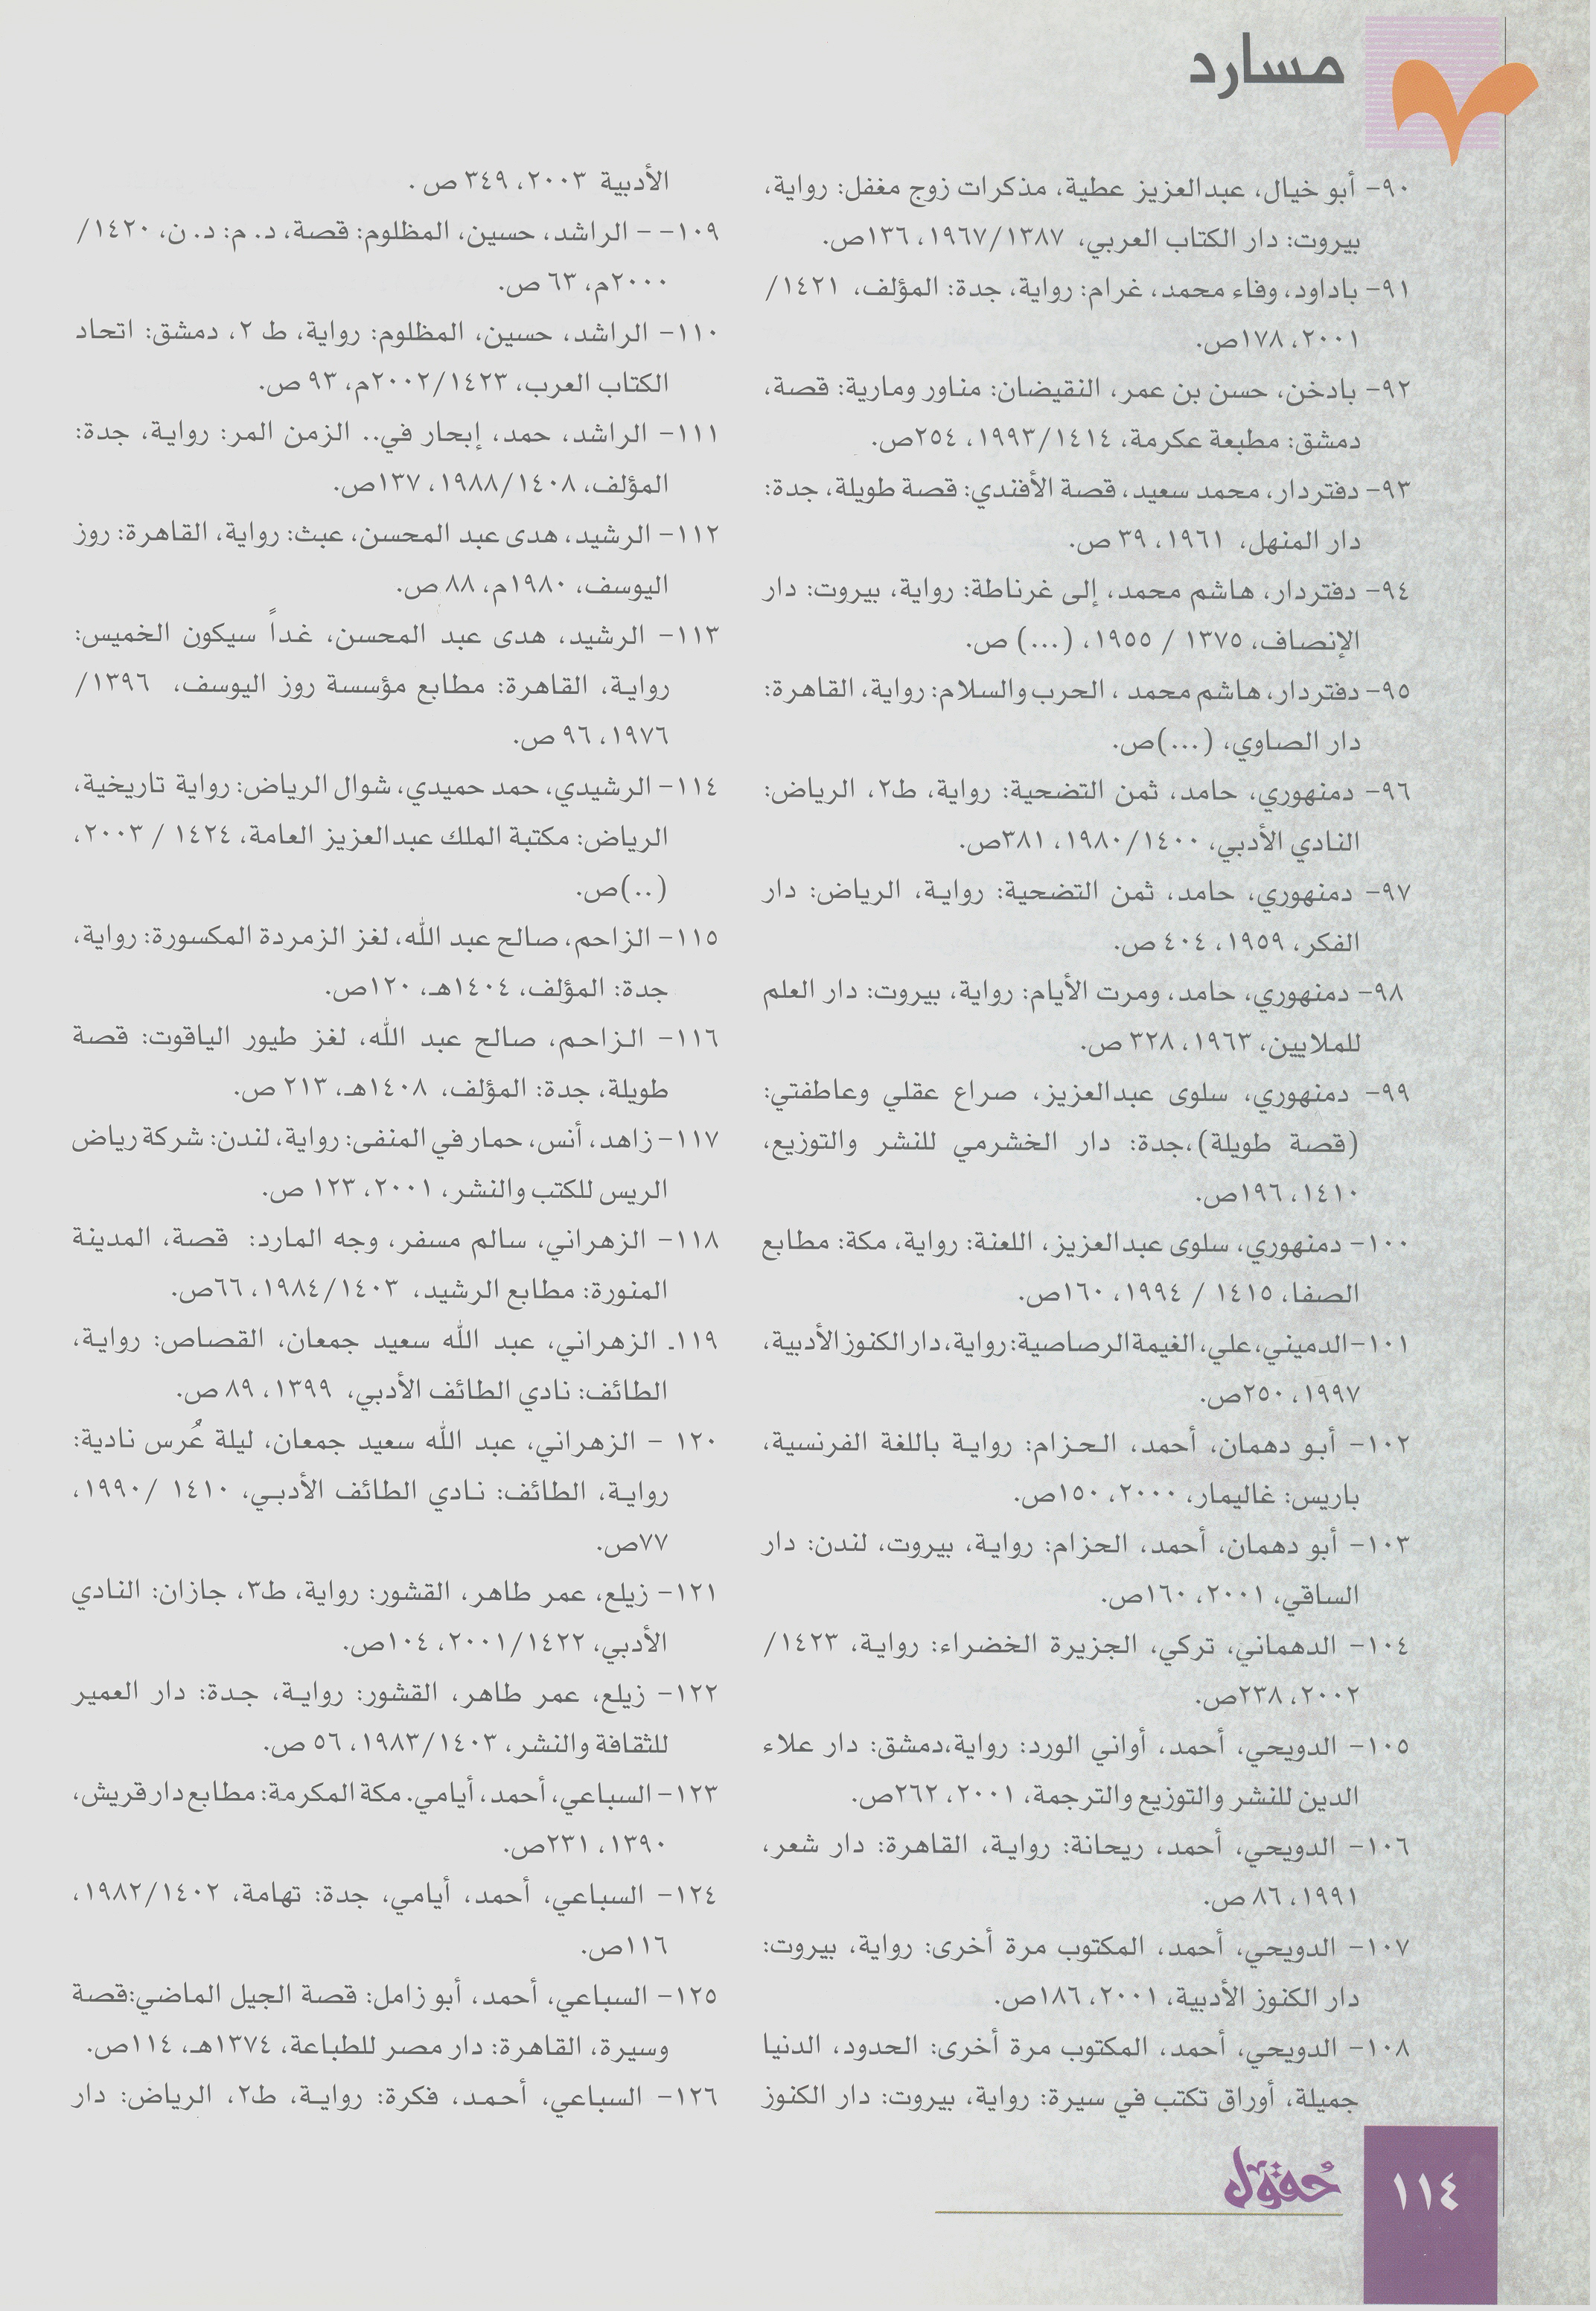 مسارد
٩٠- أبو خيال، عبدالعزيز عطية، مذكرات زوج مغفل: رواية،
بيروت: دار الكتاب العربي، ١٩٦٧/١٣٨٧، ١٣٦ص.
٩١- باداود، وفاء محمد، غرام: رواية، جدة: المؤلف، ١٤٢١/
٢٠٠١، ١٧٨ص.
٩٢- بادخن، حسن بن عمر، النقيضان: مناور ومارية: قصة،
دمشق: مطبعة عكرمة، ١٩٩٣/١٤١٤، ٢٥٤ص.
٩٣- دفتردار، محمد سعيد، قصة الأفندي: قصة طويلة، جدة:
دار المنهل، ١٩٦١، ٣٩ ص.
٩٤- دفتردار، هاشم محمد، إلى غرناطة: رواية، بيروت: دار
الإنصاف، ١٣٧٥ / ١٩٥٥، (...) ص.
٩٥- دفتردار، هاشم محمد ، الحرب والسلام: رواية، القاهرة:
دار الصاوي، (...)ص.
٩٦- دمنهوري، حامد، ثمن التضحية: رواية، ط٢، الرياض:
النادي الأدبي، ١٩٨٠/١٤٠٠، ٣٨١ص.
٩٧- دمنهوري، حامد، ثمن التضحية: رواية، الرياض: دار
الفكر، ١٩٥٩، ٤٠٤ ص.
٩٨- دمنهوري، حامد، ومرت الأيام: رواية، بيروت: دار العلم
للملايين، ١٩٦٣، ٣٢٨ ص.
٩٩- دمنهوري، سلوى عبدالعزيز، صراع عقلي وعاطفتي:
(قصة طويلة)،جدة: دار الخشرمي للنشر والتوزيع،
١٤١٠، ١٩٦ص.
١٠٠- دمنهوري، سلوى عبدالعزيز، اللعنة: رواية، مكة: مطابع
الصفا، ١٤١٥ / ١٩٩٤، ١٦٠ص.
١٠١-الدميني، علي، الغيمة الرصاصية: رواية، دار الكنوز الأدبية،
١٩٩٧، ٢٥٠ص.
١٠٢- أبو دهمان، أحمد، الحزام: رواية باللغة الفرنسية،
باريس: غاليمار، ٢٠٠٠، ١٥٠ص.
١٠٣- أبو دهمان، أحمد، الحزام: رواية، بيروت، لندن: دار
الساقي، ٢٠٠١، ١٦٠ص.
١٠٤- الدهماني، تركي، الجزيرة الخضراء: رواية، ١٤٢٣/
٢٠٠٢، ٢٣٨ص.
١٠٥- الدويحي، أحمد، أواني الورد: رواية،دمشق: دار علاء
الدين للنشر والتوزيع والترجمة، ٢٠٠١، ٢٦٢ص.
١٠٦- الدويحي، أحمد، ريحانة: رواية، القاهرة: دار شعر،
١٩٩١، ٨٦ ص.
١٠٧- الدويحي، أحمد، المكتوب مرة أخرى: رواية، بيروت:
دار الكنوز الأدبية، ٢٠٠١، ١٨٦ص.
١٠٨- الدويحي، أحمد، المكتوب مرة أخرى: الحدود، الدنيا
جميلة، أوراق تكتب في سيرة: رواية، بيروت: دار الكنوز
الأدبية ٢٠٠٣، ٣٤٩ ص .
١٠٩- - الراشد، حسين، المظلوم: قصة، د. م: د. ن، ١٤٢٠/
٢٠٠٠م، ٦٣ ص.
١١٠- الراشد، حسين، المظلوم: رواية، ط ٢، دمشق: اتحاد
الكتاب العرب، ٢٠٠٢/١٤٢٣م، ٩٣ ص.
١١١- الراشد، حمد، إبحار في.. الزمن المر: رواية، جدة:
المؤلف، ١٩٨٨/١٤٠٨، ١٣٧ص.
١١٢- الرشيد، هدى عبد المحسن، عبث: رواية، القاهرة: روز
اليوسف، ١٩٨٠م، ٨٨ ص.
١١٣- الرشيد، هدى عبد المحسن، غداً سيكون الخميس:
رواية، القاهرة: مطابع مؤسسة روز اليوسف، ١٣٩٦/
١٩٧٦، ٩٦ ص.
١١٤- الرشيدي، حمد حميدي، شوال الرياض: رواية تاريخية،
الرياض: مكتبة الملك عبدالعزيز العامة، ١٤٢٤ / ٢٠٠٣،
(..)ص.
١١٥- الزاحم، صالح عبد الله، لغز الزمردة المكسورة: رواية،
جدة: المؤلف، ١٤٠٤هـ، ١٢٠ص.
١١٦- الزاحم، صالح عبد الله، لغز طيور الياقوت: قصة
طويلة، جدة: المؤلف، ١٤٠٨هـ، ٢١٣ ص.
١١٧- زاهد، أنس، حمار في المنفى: رواية، لندن: شركة رياض
الريس للكتب والنشر، ٢٠٠١، ١٢٣ ص.
١١٨- الزهراني، سالم مسفر، وجه المارد: قصة، المدينة
المنورة: مطابع الرشيد، ١٩٨٤/١٤٠٣، ٦٦ص.
١١٩ـ الزهراني، عبد الله سعيد جمعان، القصاص: رواية،
الطائف: نادي الطائف الأدبي، ١٣٩٩، ٨٩ ص.
١٢٠ - الزهراني، عبد الله سعيد جمعان، ليلة عُرس نادية:
رواية، الطائف: نادي الطائف الأدبي، ١٤١٠ /١٩٩٠،
٧٧ص.
١٢١- زيلع، عمر طاهر، القشور: رواية، ط٣، جازان: النادي
الأدبي، ٢٠٠١/١٤٢٢، ١٠٤ص.
١٢٢- زيلع، عمر طاهر، القشور: رواية، جدة: دار العمير
للثقافة والنشر، ١٩٨٣/١٤٠٣، ٥٦ ص.
١٢٣- السباعي، أحمد، أيامي. مكة المكرمة: مطابع دار قريش،
١٣٩٠، ٢٣١ص.
١٢٤- السباعي، أحمد، أيامي، جدة: تهامة، ١٩٨٢/١٤٠٢،
١١٦ص.
١٢٥- السباعي، أحمد، أبو زامل: قصة الجيل الماضي:قصة
وسيرة، القاهرة: دار مصر للطباعة، ١٣٧٤هـ، ١١٤ص.
١٢٦- السباعي، أحمد، فكرة: رواية، ط٢، الرياض: دار
حُقول
١١٤